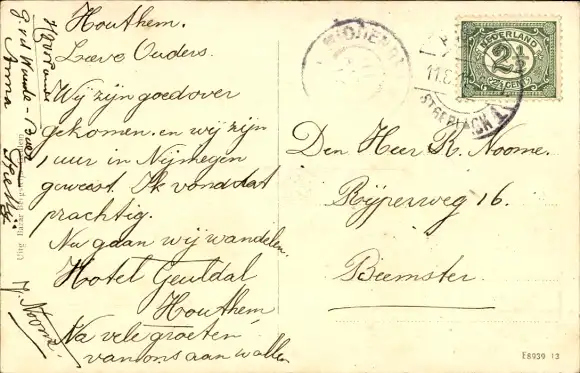 Houthem.
Lieve Ouders.
Wij zijn goed over
gekomen. en wij zijn
1 uur in Nijmegen
geweest. Ik vond dat
prachtig.
Nu gaan wij wandelen.
Hotel Geuldal
Houthem
Na vele groeten
van ons aan wallen
J. Noome.
Anna
Uitg. Bazar
NEDERLAND
2½
CENT
11.8
Den Heer K. Noome.
Rijperweg 16.
Beemster
E8939 13